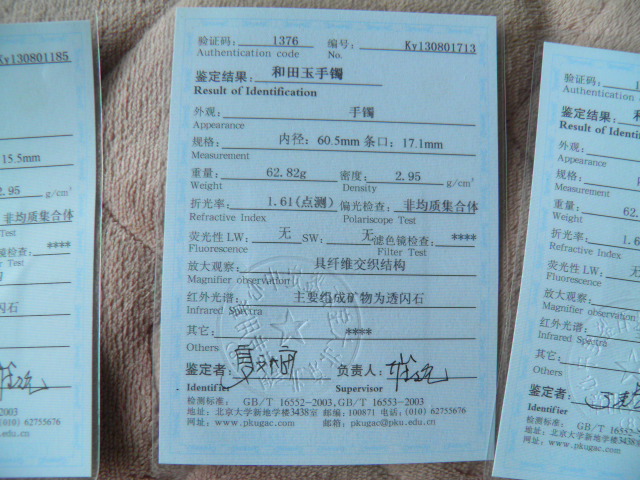 Ky130801185
15.5mm
2.95 g/cm³
非均质集合体
Test
滤色镜检查: ****
Filter Test
闪石
-2003
(010) 62755676
ku.edu.cn
验证码: 1376 编号: Ky130801713
Authentication code No.
鉴定结果: 和田玉手镯
Result of Identification
外观: 手镯
Appearance
规格: 内径: 60.5mm 条口: 17.1mm
Measurement
重量: 62.82g 密度: 2.95 g/cm³
Weight Density
折光率: 1.61(点测) 偏光检查: 非均质集合体
Refractive Index Polariscope Test
荧光性 LW: 无 SW: 无 滤色镜检查: ****
Fluorescence Filter Test
放大观察: 具纤维交织结构
Magnifier observation
红外光谱: 主要组成矿物为透闪石
Infrared Spectra
其它: ****
Others
鉴定者: 负责人:
Identifier Supervisor
检测标准: GB/T 16552-2003,GB/T 16553-2003
地址: 北京大学新地学楼3438室 邮编: 100871 电话: (010) 62755676
网址: www.pkugac.com 邮箱: pkugac@pku.edu.cn
验证码:
Authentication code
No.
鉴定结果: 和
Result of Identifi
外观:
Appearance
规格:
Measurement
重量: 62.
Weight
折光率: 1.6
Refractive Index
荧光性 LW: 无
Fluorescence
放大观察:
Magnifier observation
红外光谱:
Infrared Spectra
其它:
Others
鉴定者:
Identifier
检测标准: GB/T 16552
地址: 北京大学新地学楼3438
网址: www.pkugac.com